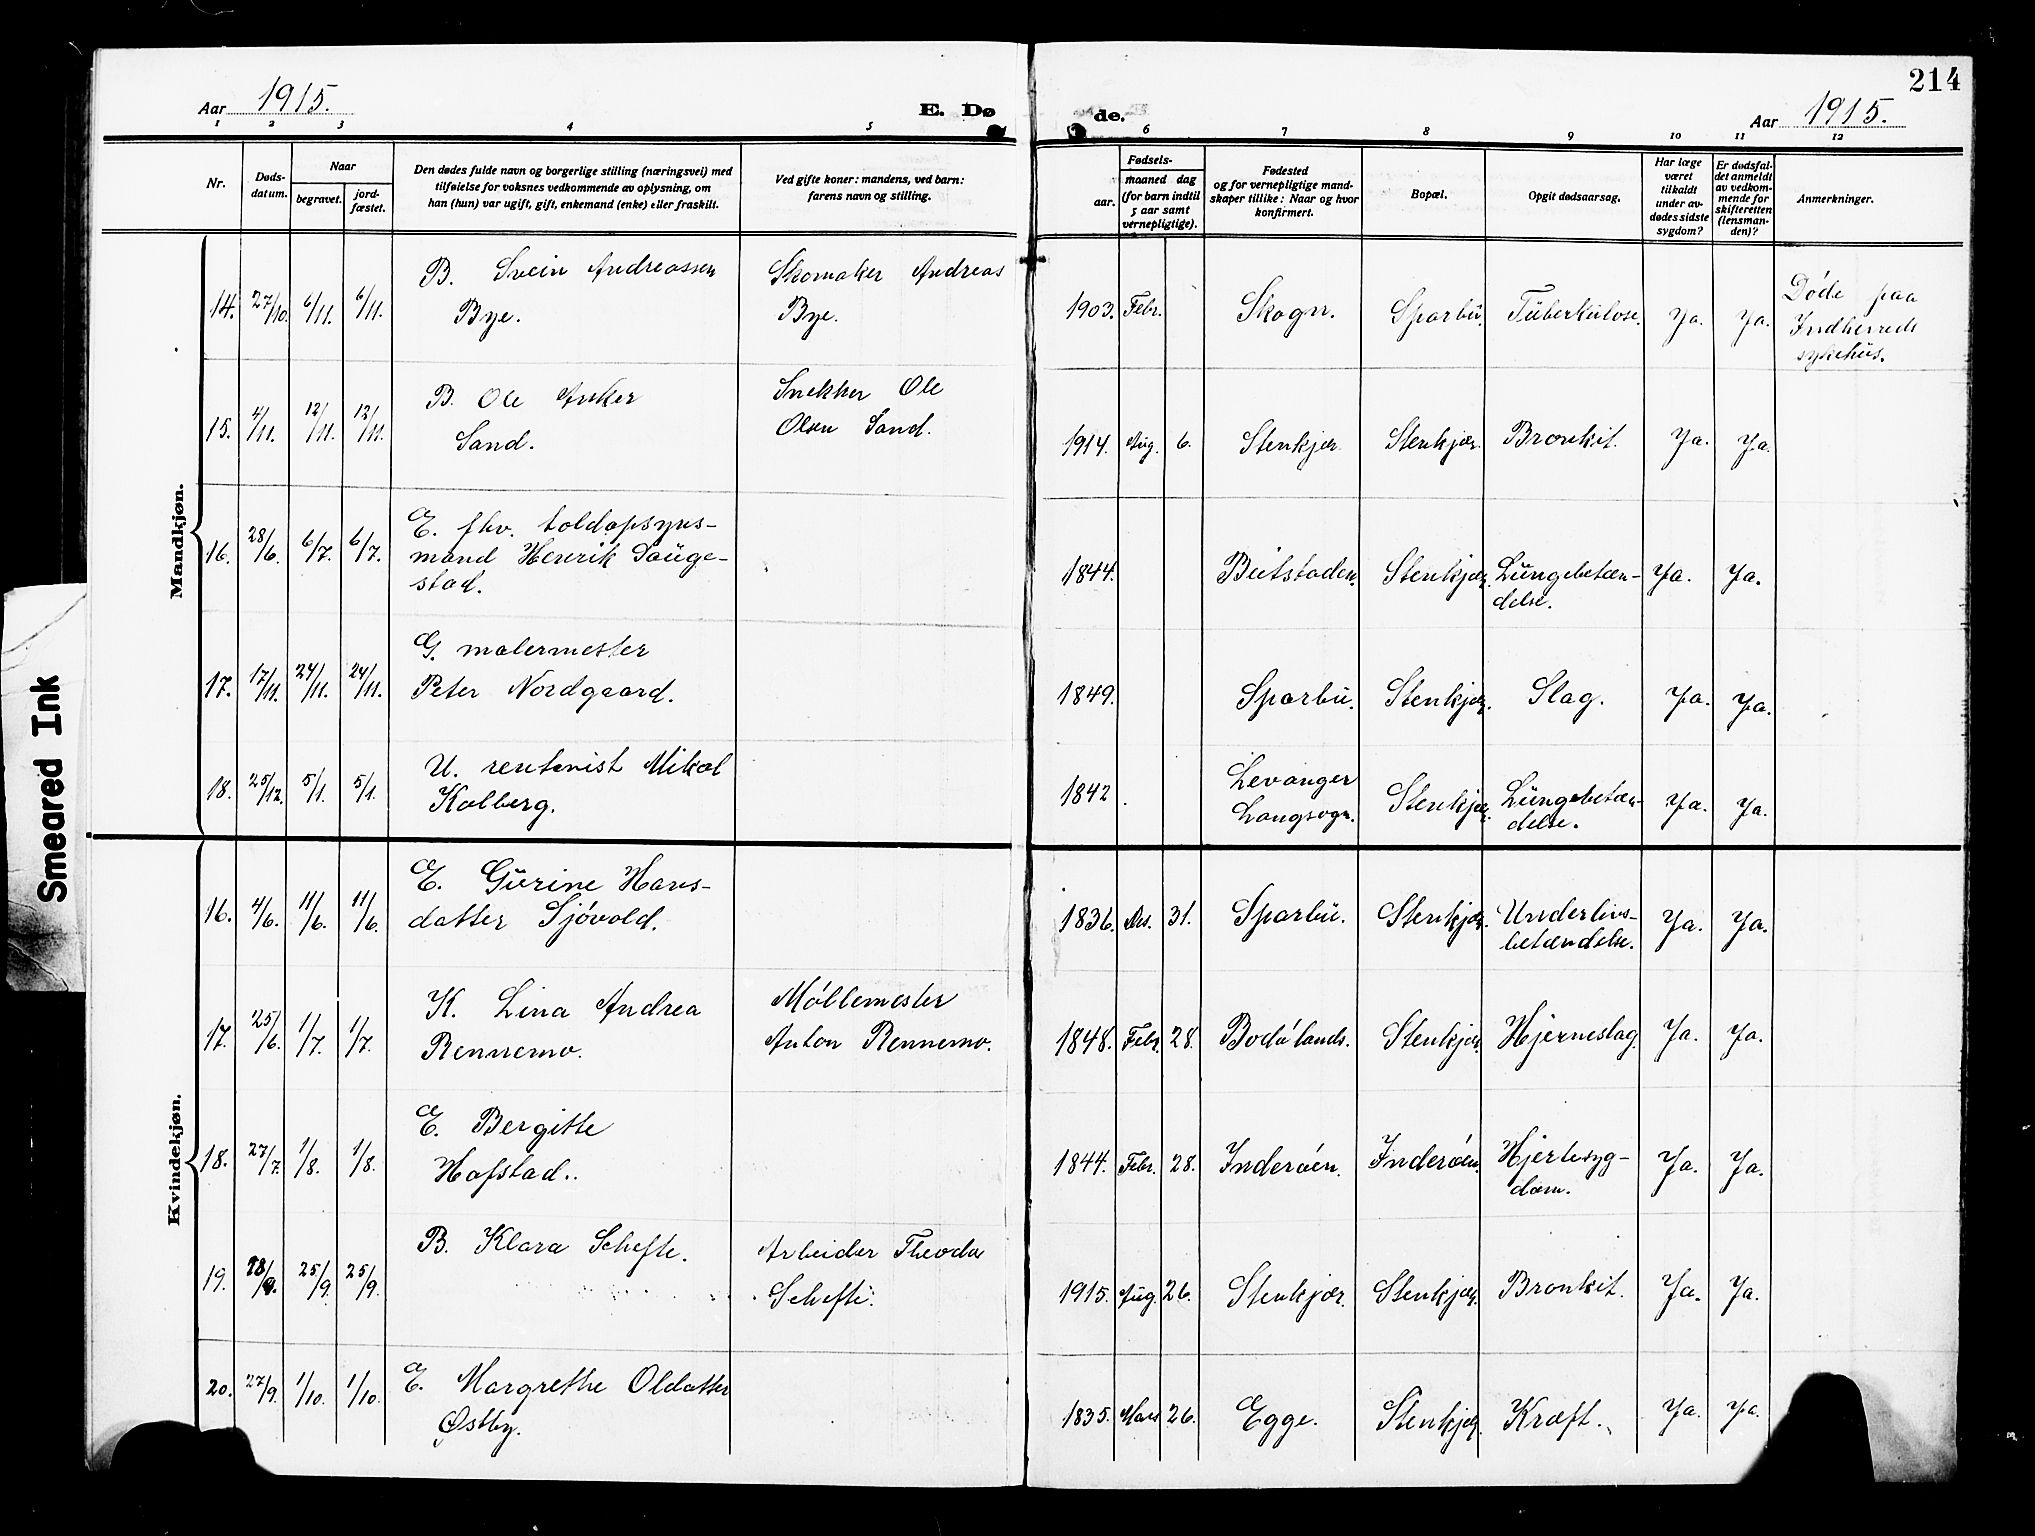 214
Aar 1915.
E. Dø
de.
Aar 1915.
1 2 3 4 5 6 7 8 9 10 11 12
Nr.
Døds-
datum.
Naar
begravet.
jord-
fæstet.
Den dødes fulde navn og borgerlige stilling (næringsvei) med
tilføielse for voksnes vedkommende av oplysning, om
han (hun) var ugift, gift, enkemand (enke) eller fraskilt.
Ved gifte koner: mandens, ved barn:
farens navn og stilling.
Fødsels-
aar.
maaned dag
(for barn indtil
5 aar samt
vernepligtige).
Fødested
og for vernepligtige mand-
skaper tillike: Naar og hvor
konfirmert.
Bopæl.
Opgit dødsaarsag.
Har læge
været
tilkaldt
under av-
dødes sidste
sygdom?
Er dødsfal-
det anmeldt
av vedkom-
mende for
skifteretten
(lensman-
den)?
Anmerkninger.
Mandkjøn.
14. 27/10. 6/11. 6/11. B. Svein Andreassen
Bye.
Skomaker Andreas
Bye.
1903. Febr. Skogn. Sparbu. Tüberkülose. Ja. Ja.
Døde paa
Indherreds
sykehüs.
15. 4/11. 12/11. 12/11. B. Ole Anker
Sand.
Snekker Ole
Olsen Sand.
1914. Aug. 6. Stenkjær. Stenkjær. Bronkit. Ja. Ja.
16. 28/6. 6/7. 6/7. E. fhv. toldopsyns-
mand Henrik Saüge-
stad.
1844. Beitstaden. Stenkjær. Lüngebetæn-
delse.
Ja. Ja.
17. 17/11. 24/11. 24/11. G. malermester
Peter Nordgaard.
1849. Sparbu. Stenkjær. Slag. Ja. Ja.
18. 25/12. 5/1. 5/1. U. rentenist Mikal
Kolberg.
1842. Levanger
Langsogn.
Stenkjær. Lüngebetæn-
delse.
Ja. Ja.
Kvindekjøn.
16. 4/6. 11/6. 11/6. E. Gürine Hans-
datter Sjøvold.
1836. Des. 31. Sparbü. Stenkjær. Underlivs-
betændelse.
Ja. Ja.
17. 25/6. 1/7. 1/7. K. Lina Andrea
Rennemo.
Møllemester
Anton Rennemo.
1848. Febr. 28. Bodølands. Stenkjær. Hjerneslag. Ja. Ja.
18. 27/7. 1/8. 1/8. E. Bergitte
Hofstad.
1844. Febr. 28. Inderøen. Inderøen. Hjertesyg-
dom.
Ja. Ja.
19. 25/9. 25/9. B. Klara Schefte.
Arbeider Theodor
Schefte.
1915. Aug. 26. Stenkjær. Stenkjær. Bronkit. Ja. Ja.
20. 27/9. 1/10. 1/10. E. Margrethe Oldatter
Østby.
1835. Mars 26. Egge. Stenkjær. Kræft. Ja. Ja.
Smeared Ink